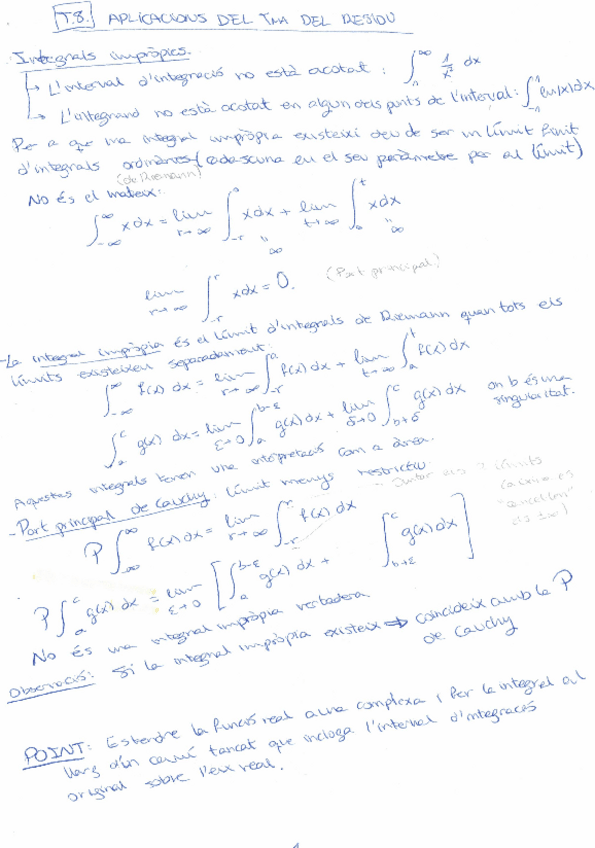 T.8. APLICACIONS DEL TMA DEL RESIDU
Integrals impròpies.
→ L'interval d'integració no està acotat: ∫₁^∞ 1/x² dx
→ L'integrand no està acotat en algun dels punts de l'interval: ∫₋₁^1 ln|x|dx
Per a que una integral impròpia existeixi deu de ser un límit finit
d'integrals ordinàries (cadascuna en el seu paràmetre per al límit)
(de Riemann)
No és el mateix:
∫₋∞^∞ x dx = lim r→∞ ∫₋r^0 x dx + lim t→∞ ∫₀^t x dx
∞ ∞
lim r→∞ ∫₋r^r x dx = 0. (Part principal)
- La integral impròpia és el límit d'integrals de Riemann quan tots els
límits existeixen separadament:
∫₋∞^∞ f(x) dx = lim r→∞ ∫₋r^a f(x) dx + lim t→∞ ∫ₐ^t f(x) dx
∫ₐ^c g(x) dx = lim ε→0 ∫ₐ^b-ε g(x) dx + lim δ→0 ∫_b+δ^c g(x) dx on b és una
singularitat.
Aquestes integrals tenen una interpretació com a àrea.
- Part principal de Cauchy: límit menys restrictiu
Juntar els 2 límits
"cancel·len"
P ∫₋∞^∞ f(x) dx = lim r→∞ ∫₋r^r f(x) dx
P ∫ₐ^c g(x) dx = lim ε→0 [ ∫ₐ^b-ε g(x) dx + ∫_b+ε^c g(x) dx ]
No és una integral impròpia vertadera
Observació: Si la integral impròpia existeix ⇒ coincideix amb la P
de Cauchy
POINT: Estendre la funció real a una complexa i fer la integral al
llarg d'un camí tancat que incloga l'interval d'integració
original sobre l'eix real.
1